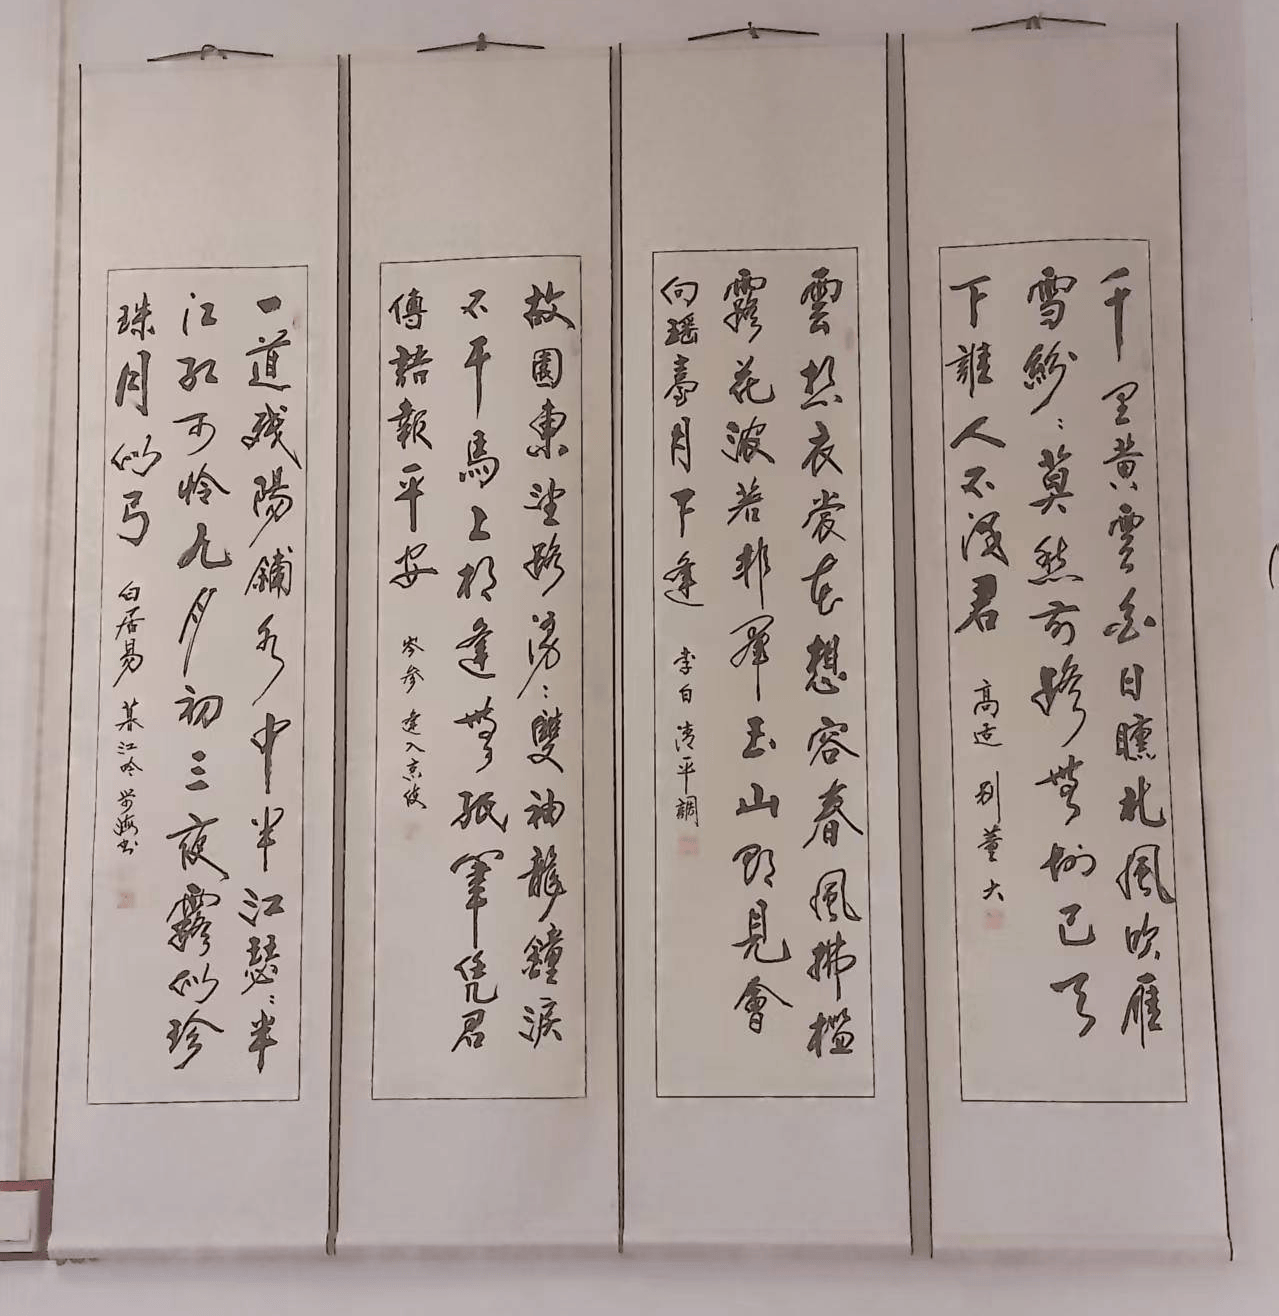 千里黄雲白日曛北風吹雁
雪紛〻莫愁前路無知己天
下誰人不識君 高适 别董大
雲想衣裳花想容春風拂檻
露花濃若非群玉山頭見會
向瑶臺月下逢 李白 清平調
故園東望路漫〻雙袖龍鐘淚
不干馬上相逢無紙筆凭君
傳語報平安 岑參 逢入京使
一道残陽鋪水中半江瑟〻半
江红可怜九月初三夜露似珍
珠月似弓 白居易 暮江吟 海书